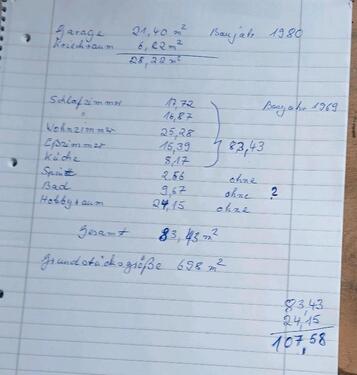 Garage 21,40 m² Baujahr 1980
Kriechraum 6,82 m²
28,22 m²
Schlafzimmer 17,72 Baujahr 1969
" 16,87
Wohnzimmer 25,28
Eßzimmer 15,39 83,43
Küche 8,17
2,86 ohne
Bad 9,67 ohne ?
Hobbyraum 24,15 ohne
Gesamt 83,43 m²
Grundstücksgröße 698 m²
83,43
24,15
107,58